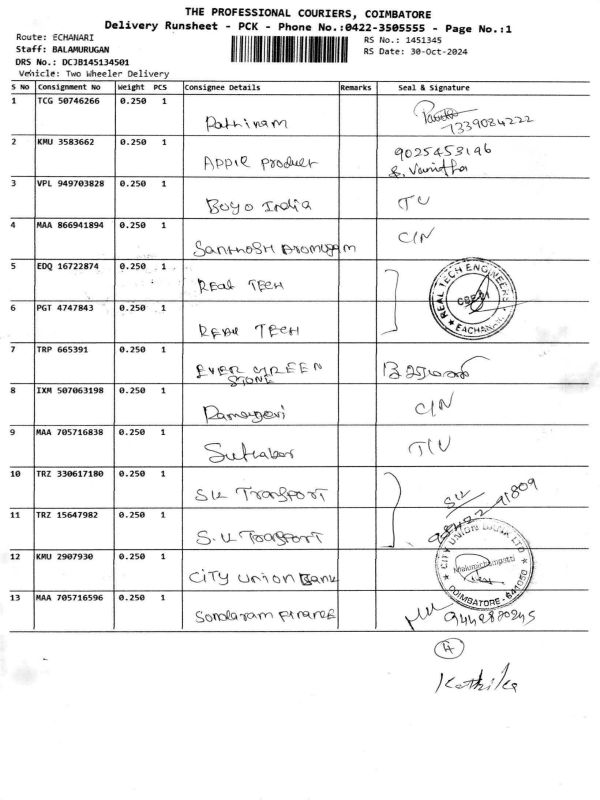 THE PROFESSIONAL COURIERS, COIMBATORE
Delivery Runsheet - PCK - Phone No.:0422-3505555 - Page No.:1
Route: ECHANARI
RS No.: 1451345
Staff: BALAMURUGAN
RS Date: 30-Oct-2024
DRS No.: DCJB145134501
Vehicle: Two Wheeler Delivery
S No Consignment No Weight PCS Consignee Details Remarks Seal & Signature
1 TCG 50746266 0.250 1 Rathinam 7339084222
2 KMU 3583662 0.250 1 APPIE Product 9025453196
S. Vanitha
3 VPL 949703828 0.250 1 Boyo India
4 MAA 866941894 0.250 1 Santhosh Aromugam C/N
5 EDQ 16722874 0.250 1 REAL TECH REAL TECH ENGINEERS
6 PGT 4747843 0.250 1 REAL TECH EACHANARI
7 TRP 665391 0.250 1 EVER GREEN
STONE
8 IXM 507063198 0.250 1 C/N
9 MAA 705716838 0.250 1
10 TRZ 330617180 0.250 1 S.K Transport
11 TRZ 15647982 0.250 1
12 KMU 2907930 0.250 1 CITY UNION Bank CITY UNION BANK LTD
COIMBATORE - 641050
13 MAA 705716596 0.250 1